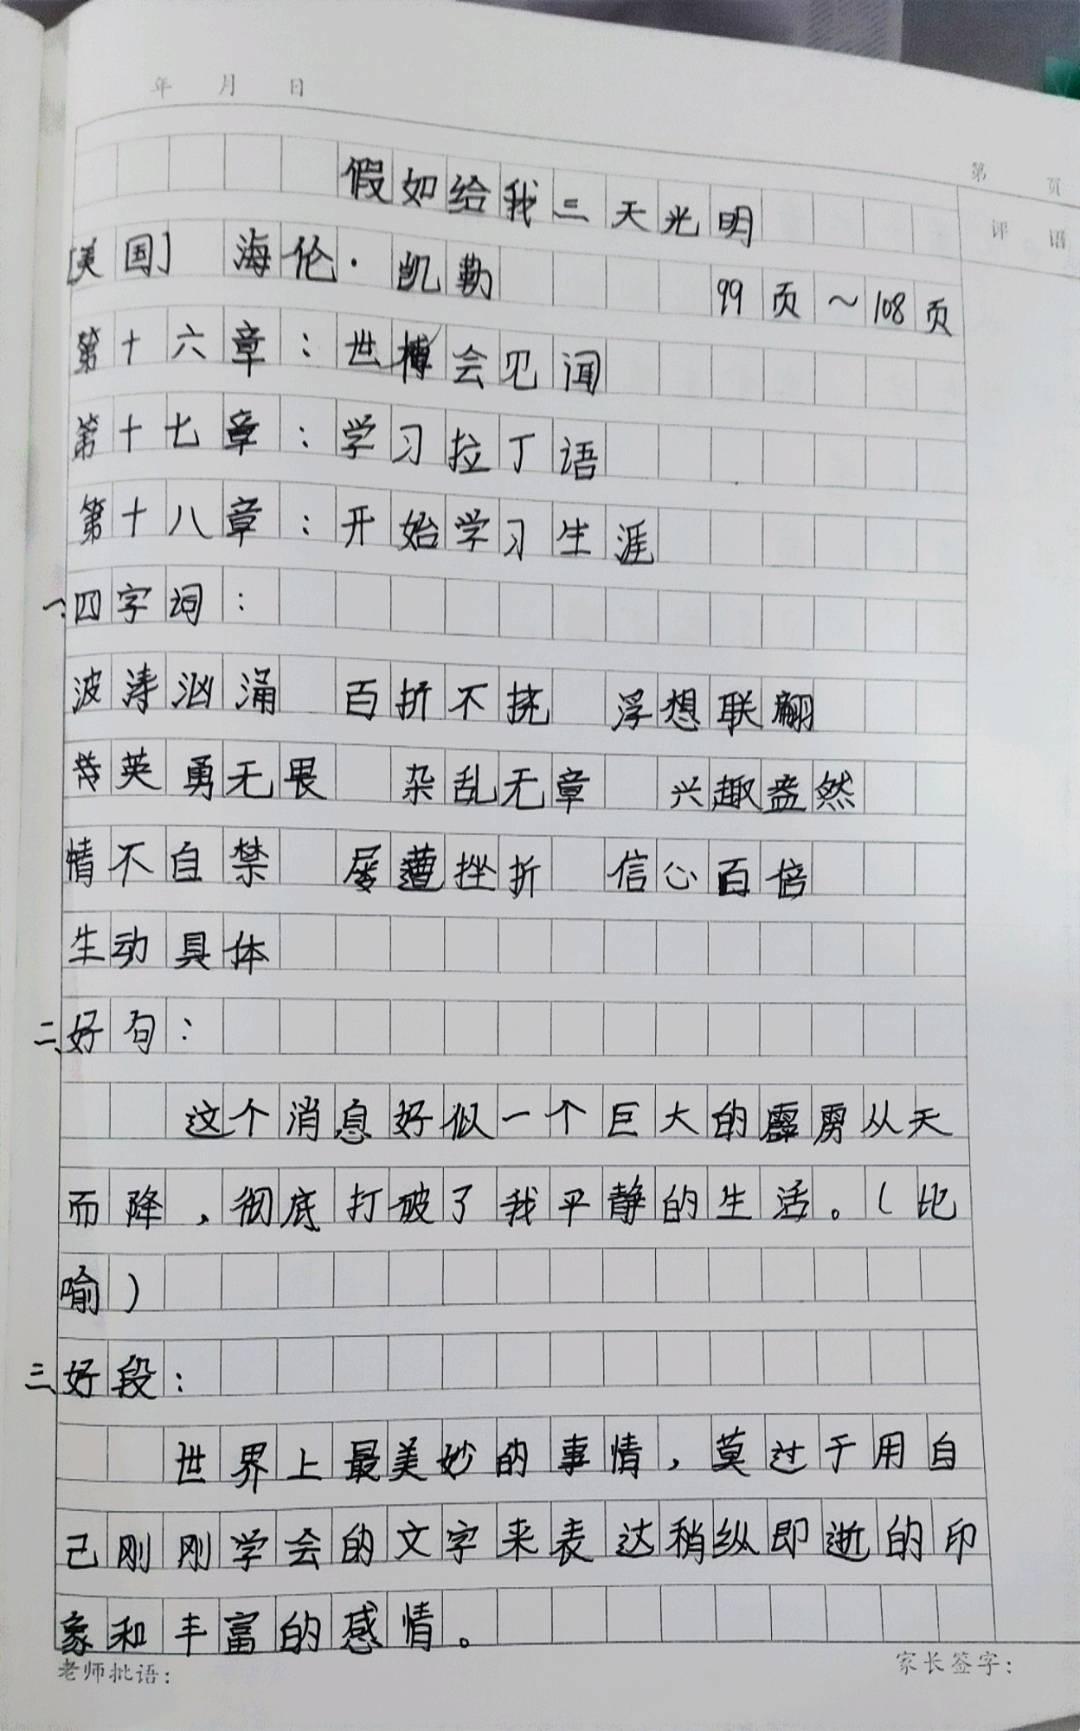 年 月 日
第 页
评语
假如给我三天光明
[美国] 海伦·凯勒 99页~108页
第十六章:世博会见闻
第十七章:学习拉丁语
第十八章:开始学习生涯
一、四字词:
波涛汹涌 百折不挠 浮想联翩
英勇无畏 杂乱无章 兴趣盎然
情不自禁 屡遭挫折 信心百倍
生动具体
二、好句:
这个消息好似一个巨大的霹雳从天
而降,彻底打破了我平静的生活。(比
喻)
三、好段:
世界上最美妙的事情,莫过于用自
己刚刚学会的文字来表达稍纵即逝的印
象和丰富的感情。
老师批语: 家长签字: